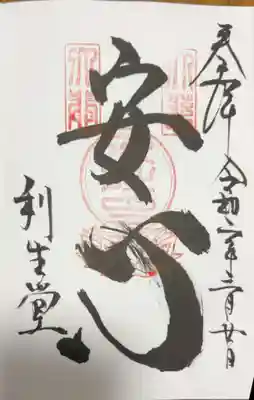 奉拝 令和二年三月廿日
安心
利生堂